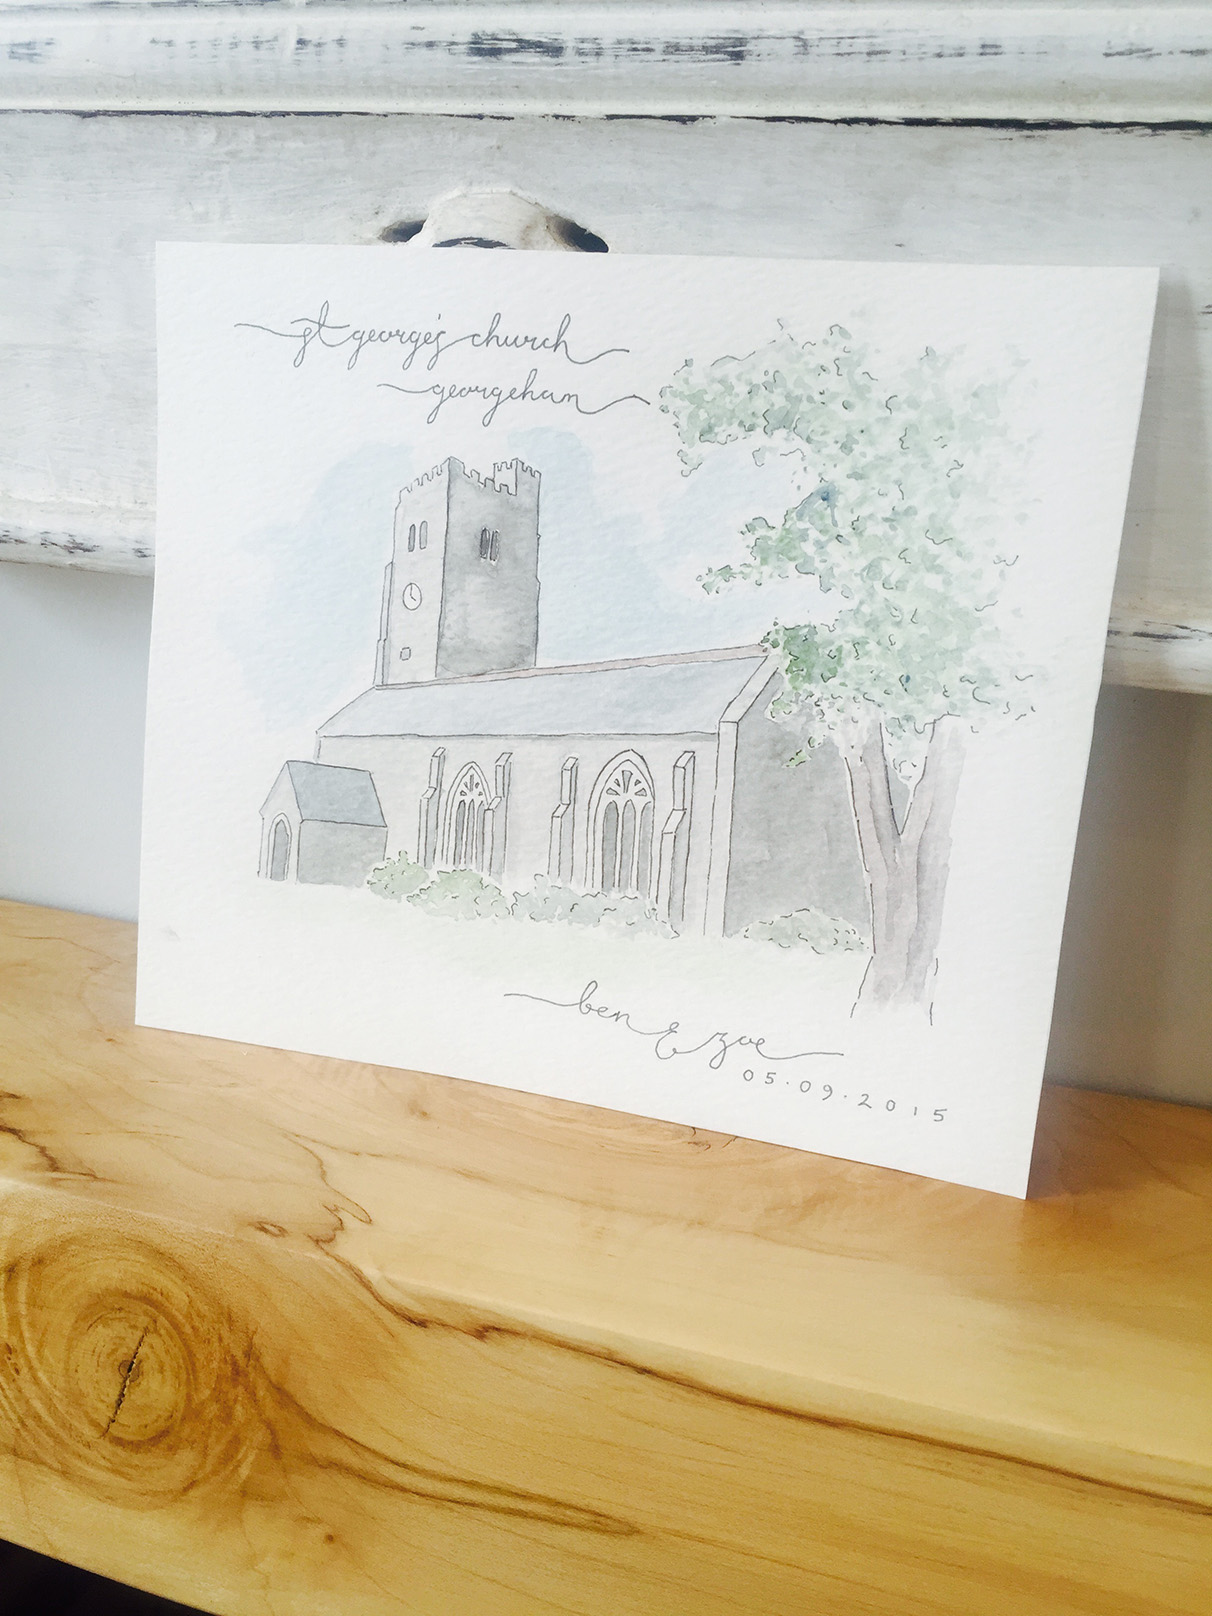 st george's church
georgeham
ben & zoe
05.09.2015